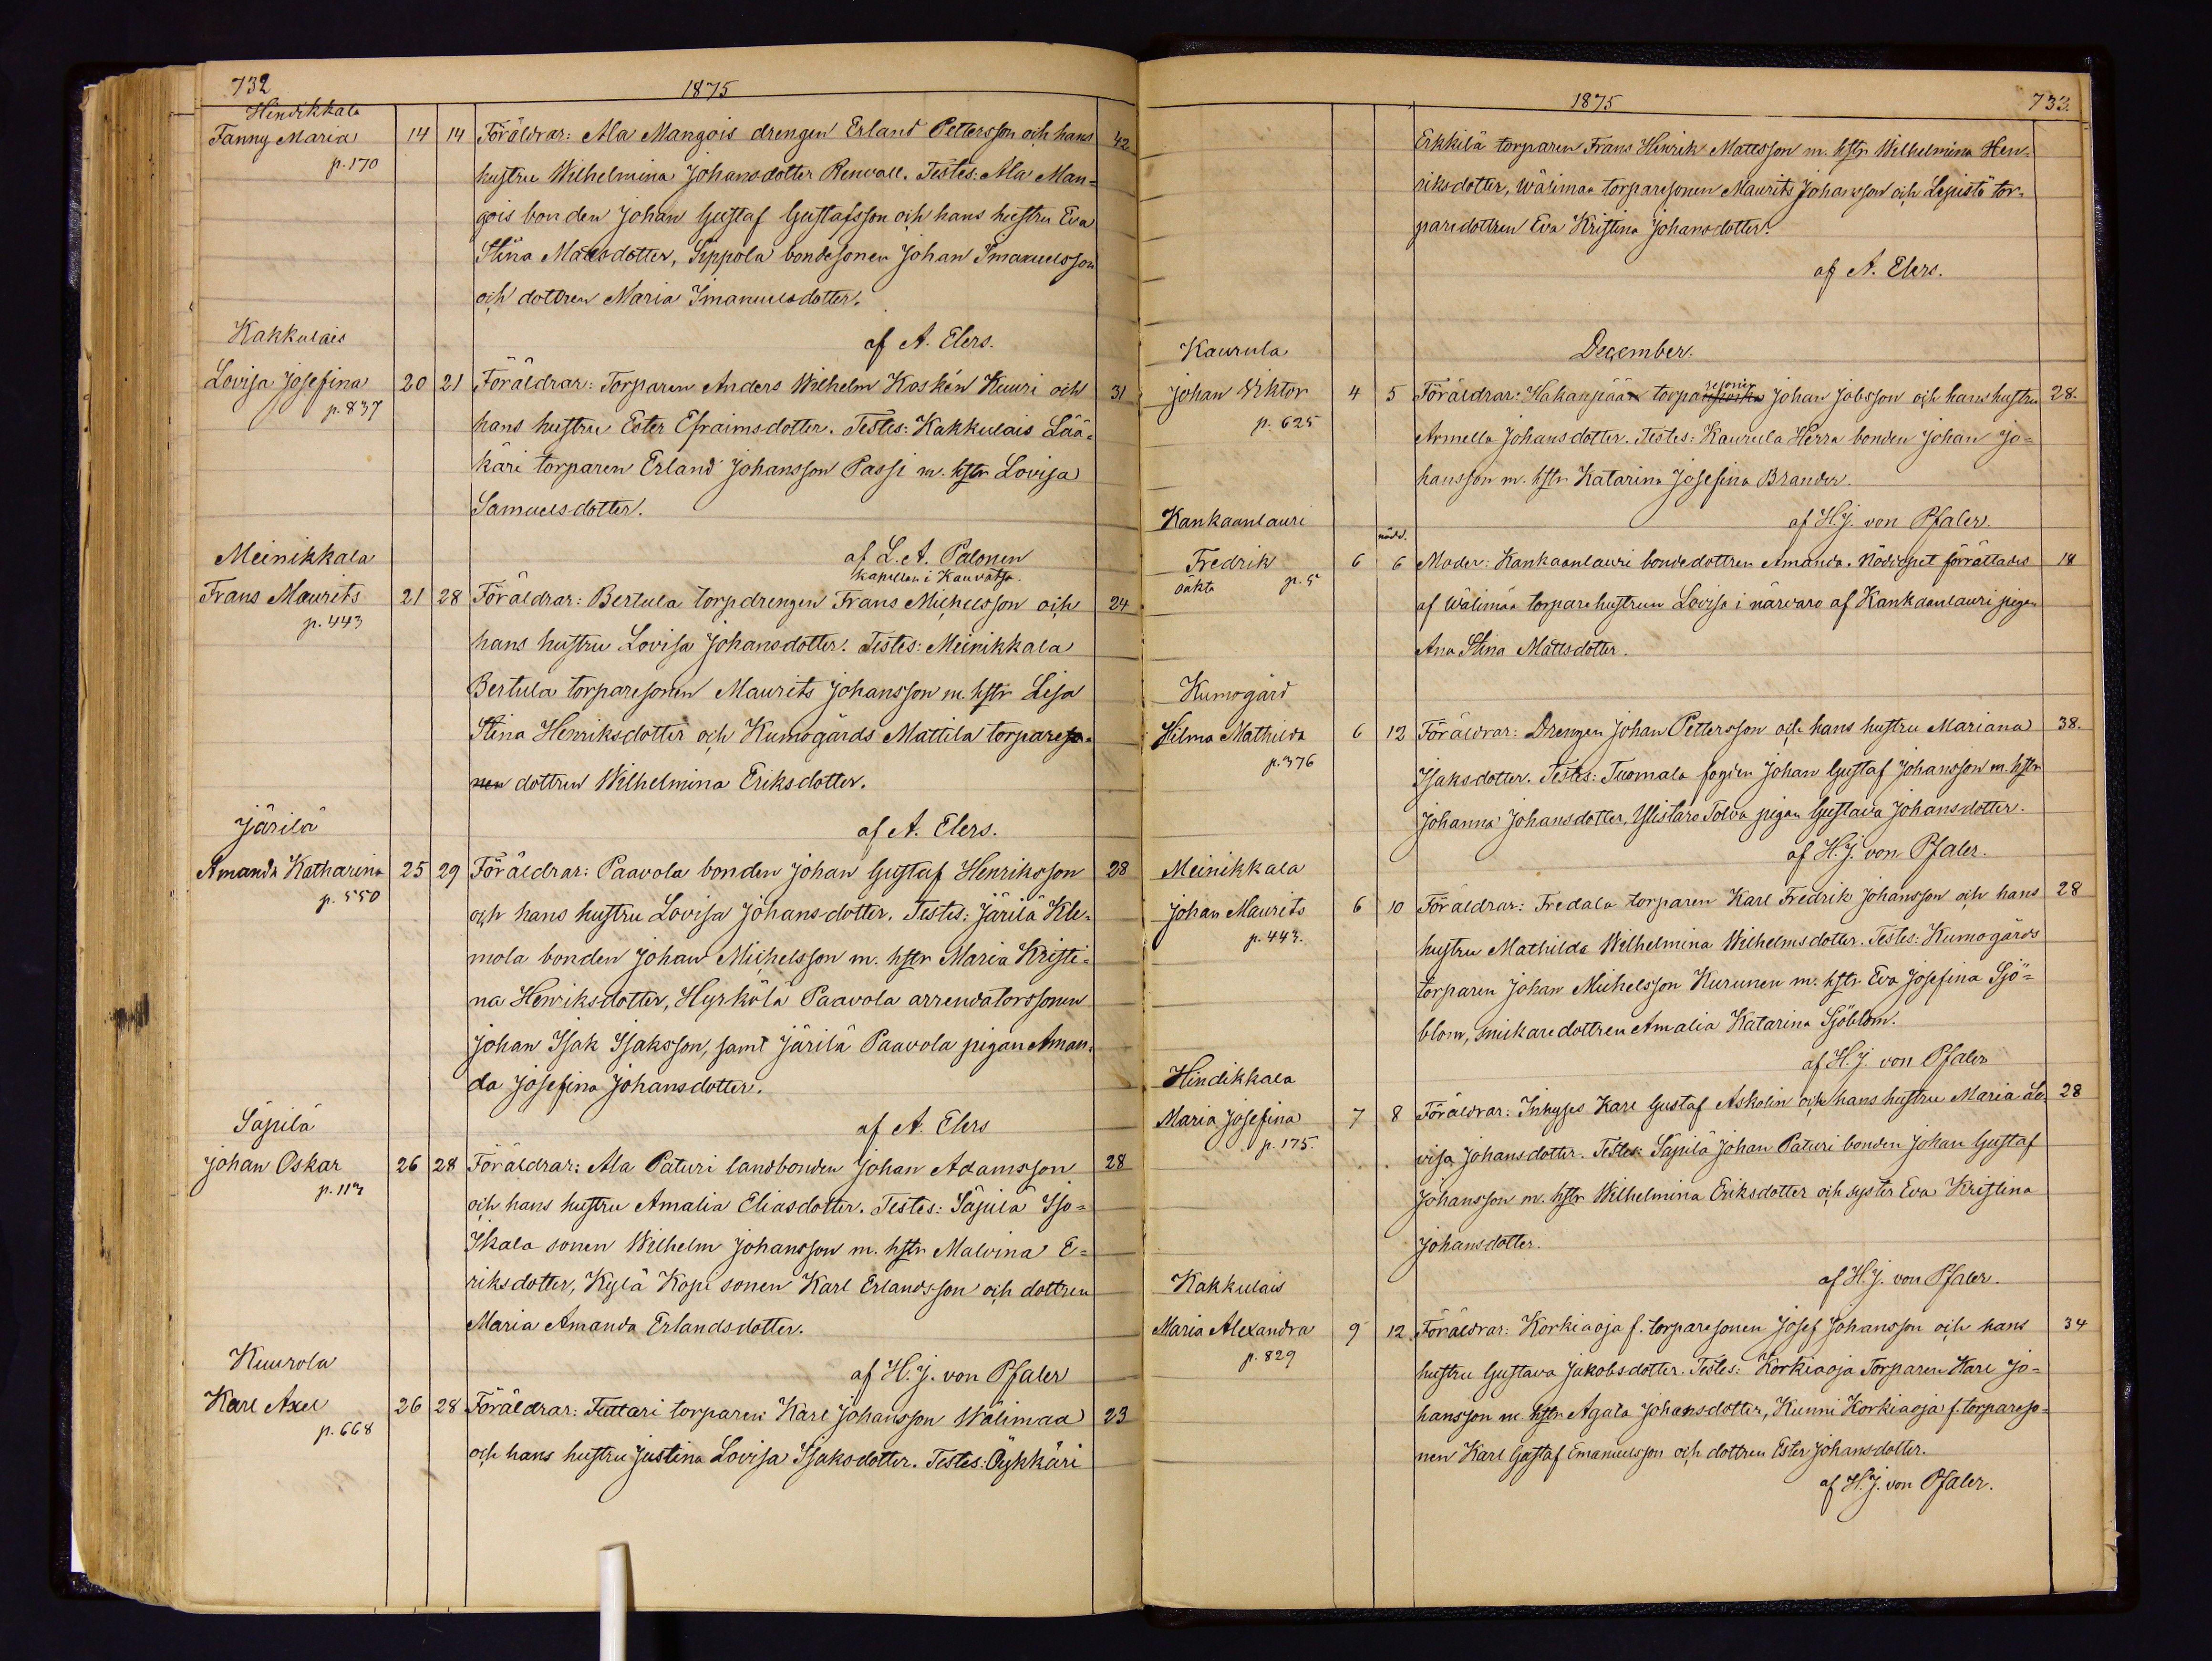 732
1875
Hindikkala
Fanny Maria 14 14 Föräldrar: Ala Mangois drengen Erland Pettersson och hans 42
p. 170 hustru Wilhelmina Johansdotter Renvall. Testes: Ala Man=
gois bonden Johan Gustaf Gustafsson och hans hustru Eva
Stina Mattsdotter, Seppola bondesonen Johan Imanuelsson
och dottren Maria Imanuelsdotter.
Kakkulais af A. Elers.
Lovisa Josefina 20 21 Föräldrar: Torparen Anders Wilhelm Koskén Kuuri och 31
p. 837 hans hustru Ester Efraimsdotter. Testes: Kakkulais Lää=
käri torparen Erland Johansson Passi m. hstr Lovisa
Samuelsdotter.
Meinikkala af L. A. Palonen
kapellan i Kauvatsa.
Frans Maurits 21 28 Föräldrar: Bertula torpdrengen Frans Michelsson och 24
p. 443 hans hustru Lovisa Johansdotter. Testes: Meinikkala
Bertula torparesonen Maurits Johansson m. hstr Lisa
Stina Henriksdotter och Kumogårds Mattila torpareso=
nen dottren Wilhelmina Eriksdotter.
Järilä af A. Elers.
Amanda Katharina 25 29 Föräldrar: Paavola bonden Johan Gustaf Henriksson 28
p. 550 och hans hustru Lovisa Johansdotter. Testes: Järilä Kle=
mola bonden Johan Michelsson m. hstr Maria Kristi=
na Henriksdotter, Hyrkölä Paavola arrendatorssonen
Johan Isak Isaksson, samt Järilä Paavola pigan Aman=
da Josefina Johansdotter.
Säpilä af A. Elers
Johan Oskar 26 28 Föräldrar: Ala Paturi landbonden Johan Adamsson 28
p. 113 och hans hustru Amalia Eliasdotter. Testes: Säpilä Iso=
Ikala sonen Wilhelm Johansson m. hstr Malvina E=
riksdotter, Kylä Kopi sonen Karl Erlandsson och dottren
Maria Amanda Erlandsdotter.
Kuurola af H. J. von Pfaler
Karl Axel 26 28 Föräldrar: Tuttari torparen Karl Johansson Wälimaa 23
p. 668 och hans hustru Justina Lovisa Isaksdotter. Testes: Öykkäri
1875
733.
Erkkilä torparen Frans Henrik Mattsson m. hstr Wilhelmina Hen=
riksdotter, Wärimaa torparesonen Maurits Johansson och Lepistö tor=
paredottren Eva Kristina Johansdotter.
af A. Elers.
Kaurula December.
Johan Viktor 4 5 Föräldrar: Hakanpään torparesonen Johan Jobsson och hans hustru 28.
p. 625 Armella Johansdotter. Testes: Kaurula Herra bonden Johan Jo=
hansson m. hstr Katarina Josefina Brander.
Kankaanlauri af H. J. von Pfaler.
nödd.
Fredrik 6 6 Moder: Kankaanlauri bondedottren Amanda. Nöddopet förrättades 18
oäkta p. 5 af Wälimää torparehustrun Lovisa i närvaro af Kankaanlauri pigan
Ana Stina Mattsdotter.
Kumogård
Hilma Mathilda 6 12 Föräldrar: Drengen Johan Pettersson och hans hustru Mariana 38.
p. 376 Isaksdotter. Testes: Tuomala fogden Johan Gustaf Johansson m. hstr
Johanna Johansdotter, Ylistaro Tolva pigan Gustava Johansdotter.
af H. J. von Pfaler.
Meinikkala
Johan Maurits 6 10 Föräldrar: Fredala torparen Karl Fredrik Johansson och hans 28
p. 443. hustru Mathilda Wilhelmina Wilhelmsdotter. Testes: Kumogårds
torparen Johan Michelsson Kurunen m. hstr Eva Josefina Sjö=
blom, snickaredottren Amalia Katarina Sjöblom.
af H. J. von Pfaler
Hindikkala
Maria Josefina 7 8 Föräldrar: Inhyses Karl Gustaf Askolin och hans hustru Maria Lo= 28
p. 175. visa Johansdotter. Testes: Säpilä Johan Paturi bonden Johan Gustaf
Johansson m. hstr Wilhelmina Eriksdotter och syster Eva Kristina
Johansdotter.
Kakkulais af H. J. von Pfaler.
Maria Alexandra 9 12 Föräldrar: Korkiaoja f. torparesonen Josef Johansson och hans 34
p. 829 hustru Gustava Jakobsdotter. Testes: Korkiaoja Torparen Karl Jo=
hansson m. hstr Agata Johansdotter, Kunni Korkiaoja f. torpareso=
nen Karl Gustaf Emanuelsson och dottren Ester Johansdotter.
af H. J. von Pfaler.